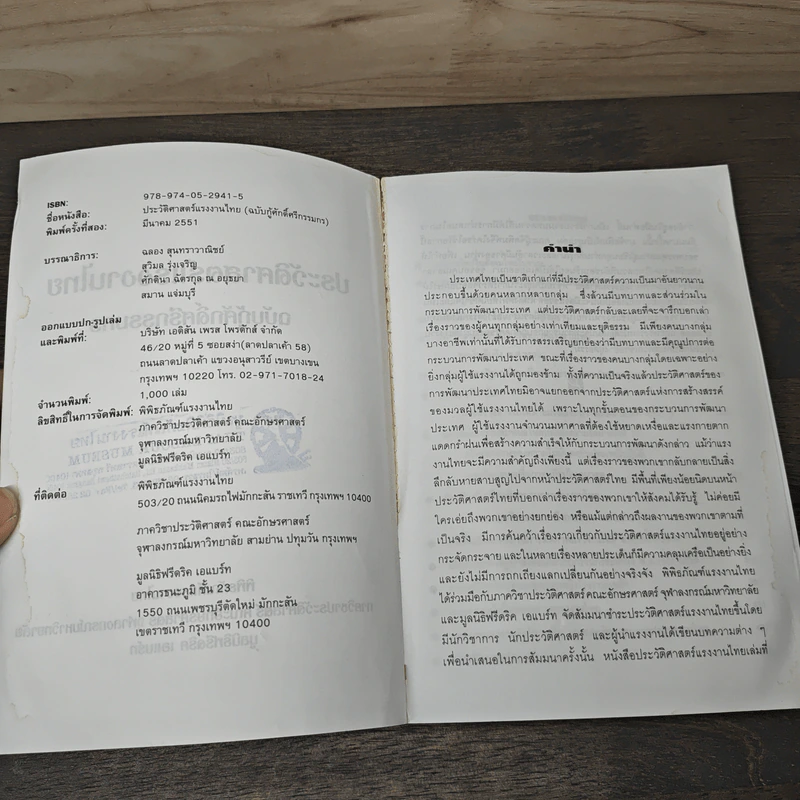 ISBN: 978-974-05-2941-5
ชื่อหนังสือ: ประวัติศาสตร์แรงงานไทย (ฉบับกู้ศักดิ์ศรีกรรมกร)
พิมพ์ครั้งที่สอง: มีนาคม 2551
บรรณาธิการ: ฉลอง สุนทราวาณิชย์
สุวิมล รุ่งเจริญ
ศักดินา ฉัตรกุล ณ อยุธยา
สมาน แจ่มบุรี
ออกแบบปก-รูปเล่ม
และพิมพ์ที่: บริษัท เอดิสัน เพรส โพรดักส์ จำกัด
46/20 หมู่ที่ 5 ซอยสง่า(ลาดปลาเค้า 58)
ถนนลาดปลาเค้า แขวงอนุสาวรีย์ เขตบางเขน
กรุงเทพฯ 10220 โทร. 02-971-7018-24
จำนวนพิมพ์: 1,000 เล่ม
ลิขสิทธิ์ในการจัดพิมพ์: พิพิธภัณฑ์แรงงานไทย
ภาควิชาประวัติศาสตร์ คณะอักษรศาสตร์
จุฬาลงกรณ์มหาวิทยาลัย
มูลนิธิฟรีดริค เอแบร์ท
ที่ติดต่อ พิพิธภัณฑ์แรงงานไทย
503/20 ถนนนิคมรถไฟมักกะสัน ราชเทวี กรุงเทพฯ 10400
ภาควิชาประวัติศาสตร์ คณะอักษรศาสตร์
จุฬาลงกรณ์มหาวิทยาลัย สามย่าน ปทุมวัน กรุงเทพฯ
มูลนิธิฟรีดริค เอแบร์ท
อาคารธนะภูมิ ชั้น 23
1550 ถนนเพชรบุรีตัดใหม่ มักกะสัน
เขตราชเทวี กรุงเทพฯ 10400
คำนำ
ประเทศไทยเป็นชาติเก่าแก่ที่มีประวัติศาสตร์ความเป็นมาอันยาวนาน
ประกอบขึ้นด้วยคนหลากหลายกลุ่ม ซึ่งล้วนมีบทบาทและส่วนร่วมใน
กระบวนการพัฒนาประเทศ แต่ประวัติศาสตร์กลับละเลยที่จะจารึกบอกเล่า
เรื่องราวของผู้คนทุกกลุ่มอย่างเท่าเทียมและยุติธรรม มีเพียงคนบางกลุ่ม
บางอาชีพเท่านั้นที่ได้รับการสรรเสริญยกย่องว่ามีบทบาทและมีคุณูปการต่อ
กระบวนการพัฒนาประเทศ ขณะที่เรื่องราวของคนบางกลุ่มโดยเฉพาะอย่าง
ยิ่งกลุ่มผู้ใช้แรงงานได้ถูกมองข้าม ทั้งที่ความเป็นจริงแล้วประวัติศาสตร์ของ
การพัฒนาประเทศไทยมิอาจแยกออกจากประวัติศาสตร์แห่งการสร้างสรรค์
ของมวลผู้ใช้แรงงานไทยได้ เพราะในทุกขั้นตอนของกระบวนการพัฒนา
ประเทศ ผู้ใช้แรงงานจำนวนมหาศาลที่ต้องใช้หยาดเหงื่อและแรงกายตาก
แดดกรำฝนเพื่อสร้างความสำเร็จให้กับกระบวนการพัฒนาดังกล่าว แม้ว่าแรง
งานไทยจะมีความสำคัญถึงเพียงนี้ แต่เรื่องราวของพวกเขากลับกลายเป็นสิ่ง
ลึกลับหายสาบสูญไปจากหน้าประวัติศาสตร์ไทย มีพื้นที่เพียงน้อยนิดบนหน้า
ประวัติศาสตร์ไทยที่บอกเล่าเรื่องราวของพวกเขาให้สังคมได้รับรู้ ไม่ค่อยมี
ใครเอ่ยถึงพวกเขาอย่างยกย่อง หรือแม้แต่กล่าวถึงผลงานของพวกเขาตามที่
เป็นจริง มีการค้นคว้าเรื่องราวเกี่ยวกับประวัติศาสตร์แรงงานไทยอยู่อย่าง
กระจัดกระจาย และในหลายเรื่องหลายประเด็นก็มีความคลุมเครือเป็นอย่างยิ่ง
และยังไม่มีการถกเถียงแลกเปลี่ยนกันอย่างจริงจัง พิพิธภัณฑ์แรงงานไทย
ได้ร่วมมือกับภาควิชาประวัติศาสตร์ คณะอักษรศาสตร์ จุฬาลงกรณ์มหาวิทยาลัย
และมูลนิธิฟรีดริค เอแบร์ท จัดสัมมนาชำระประวัติศาสตร์แรงงานไทยขึ้นโดย
มีนักวิชาการ นักประวัติศาสตร์ และผู้นำแรงงานได้เขียนบทความต่าง ๆ
เพื่อนำเสนอในการสัมมนาครั้งนั้น หนังสือประวัติศาสตร์แรงงานไทยเล่มที่